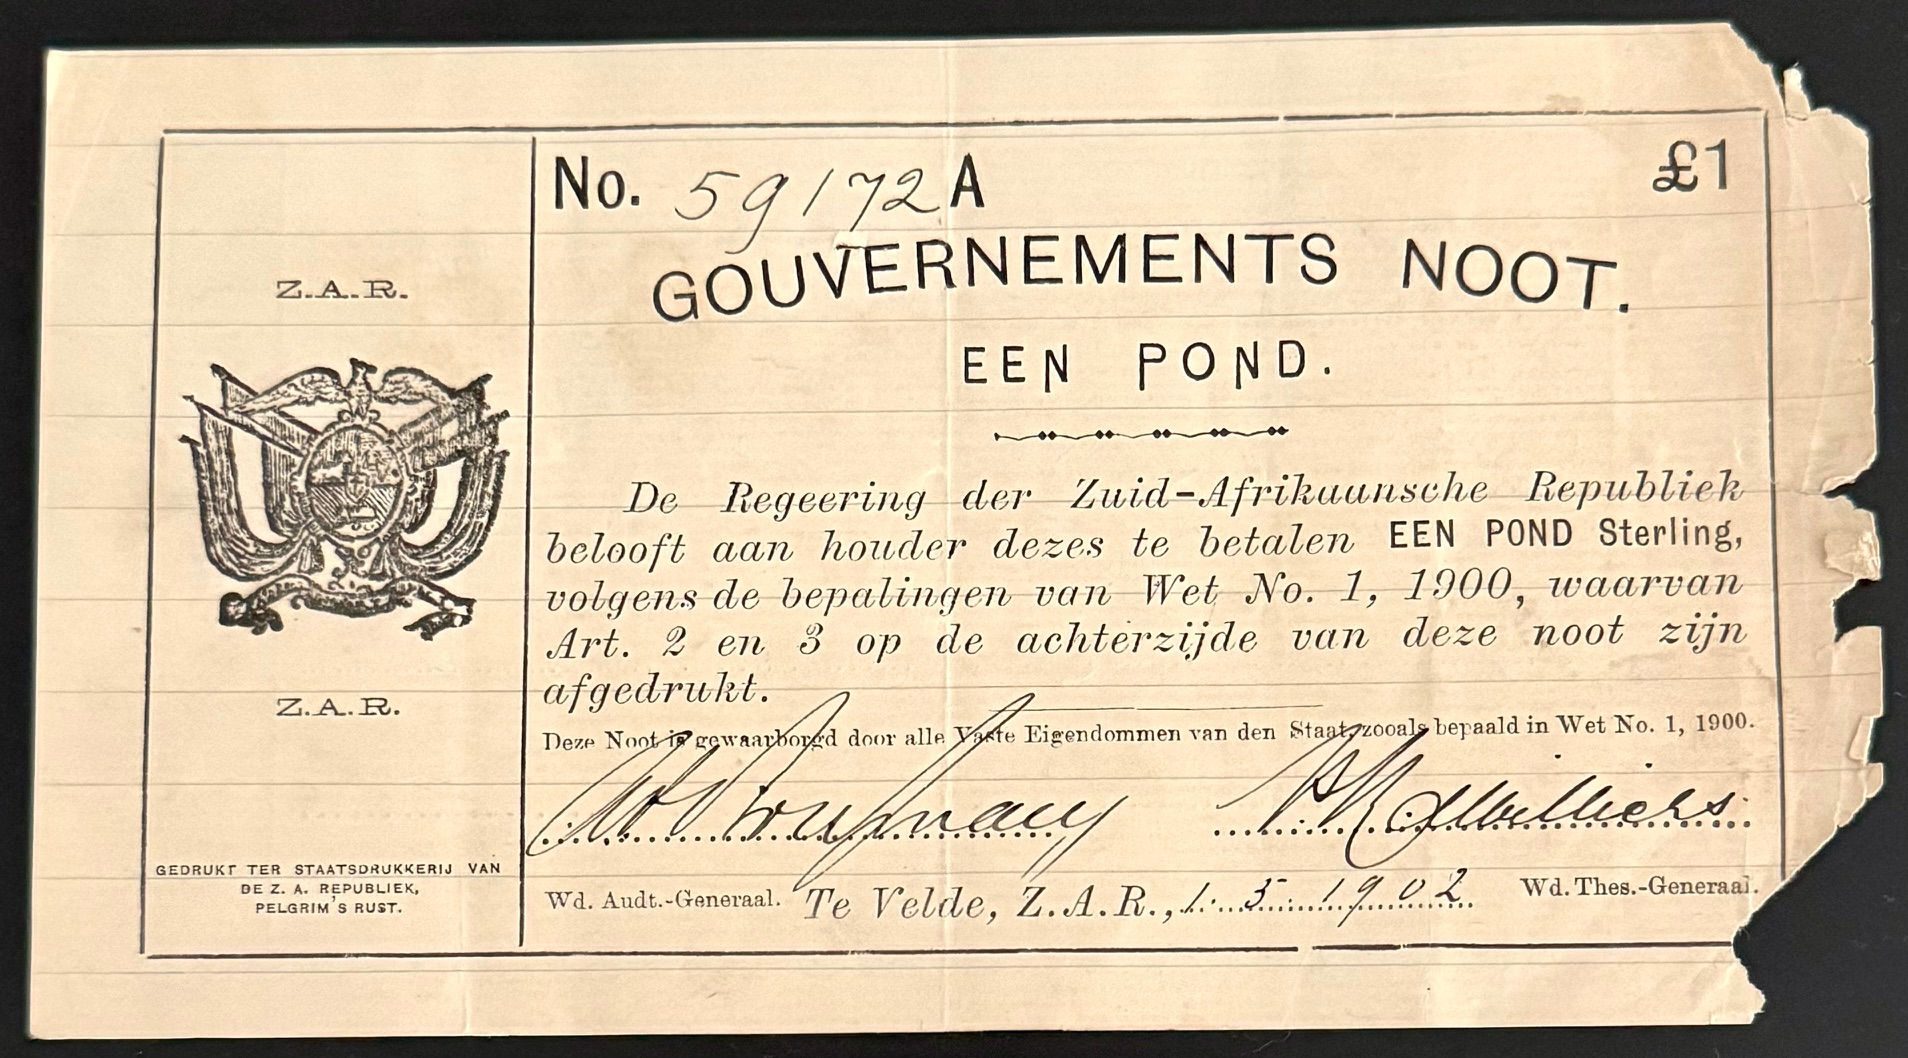 No. 59172 A £1
GOUVERNEMENTS NOOT.
EEN POND.
De Regeering der Zuid-Afrikaansche Republiek
belooft aan houder dezes te betalen EEN POND Sterling,
volgens de bepalingen van Wet No. 1, 1900, waarvan
Art. 2 en 3 op de achterzijde van deze noot zijn
afgedrukt.
Deze Noot is gewaarborgd door alle Vaste Eigendommen van den Staat, zooals bepaald in Wet No. 1, 1900.
Wd. Audt.-Generaal. Te Velde, Z.A.R., 1. 5. 1902 Wd. Thes.-Generaal.
Z.A.R.
Z.A.R.
GEDRUKT TER STAATSDRUKKERIJ VAN
DE Z. A. REPUBLIEK,
PELGRIM'S RUST.